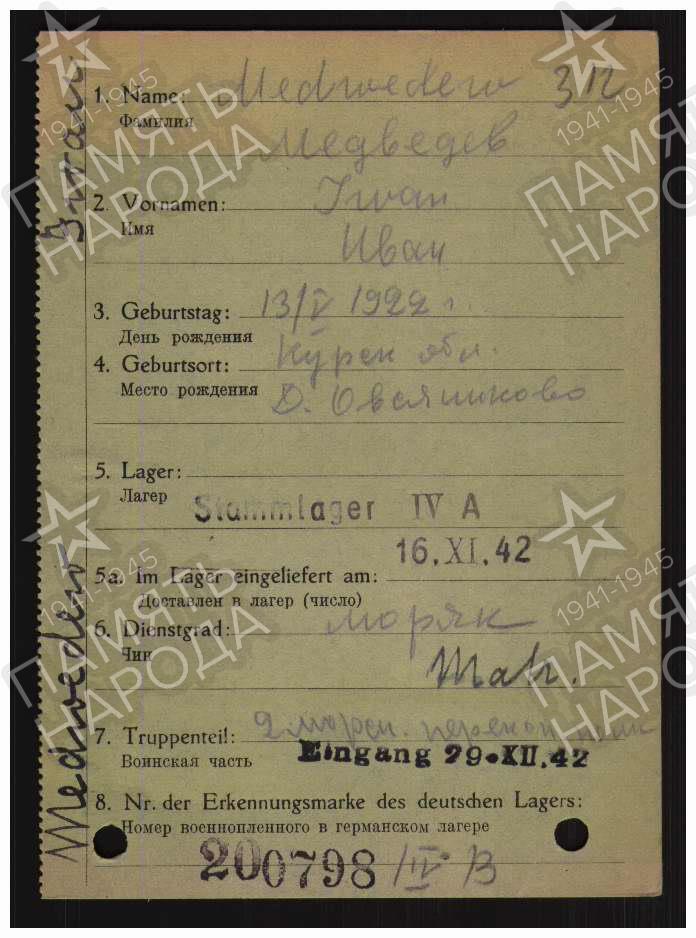 1. Name: Medwedew 312
Фамилия
Медведев
2. Vornamen: Iwan
Имя
Иван
3. Geburtstag: 13/V 1922 г.
День рождения
4. Geburtsort: Курск обл.
Место рождения Д. Овсянниково
5. Lager:
Лагер
Stammlager IV A
16.XI.42
5a. Im Lager eingeliefert am:
Доставлен в лагер (число)
6. Dienstgrad: моряк
Чин
Matr.
7. Truppenteil: 2 морск.
Воинская часть Eingang 29.XII.42
8. Nr. der Erkennungsmarke des deutschen Lagers:
Номер военнопленного в германском лагере
200798 /IV B
Medwedew Iwan
1941-1945
ПАМЯТЬ
НАРОДА
1941-1945
ПАМЯТЬ
НАРОДА
1941-1945
ПАМЯТЬ
НАРОДА
1941-1945
ПАМЯТЬ
НАРОДА